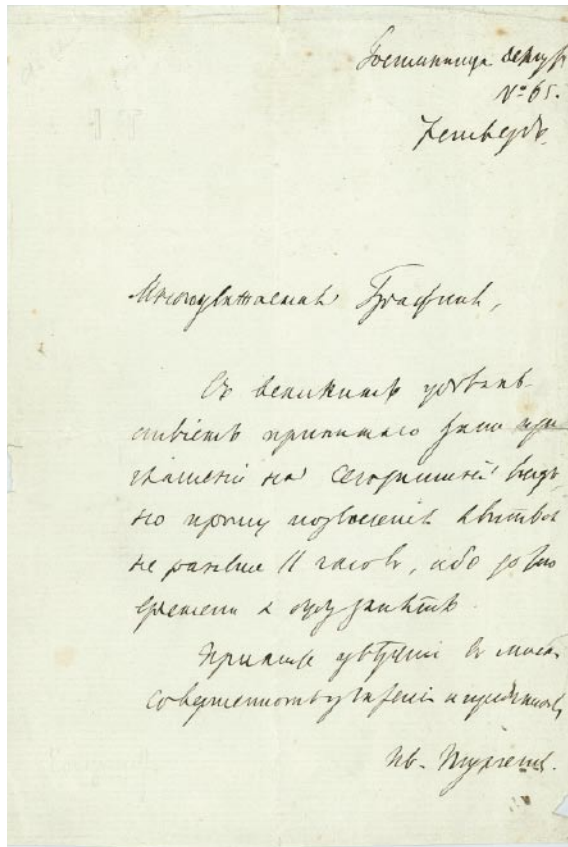 Гостинница Демутъ
№ 65.
Четвергъ.
Многоуважаемая Графиня,
Съ великимъ удоволь-
ствіемъ принимаю Ваше при-
глашеніе на сегодняшній вечеръ,
но прошу позволенія явиться
не ранѣе 11 часовъ, ибо до того
времени я буду занятъ.
Примите увѣреніе въ моемъ
совершенномъ уваженіи и преданности,
Ив. Тургеневъ.